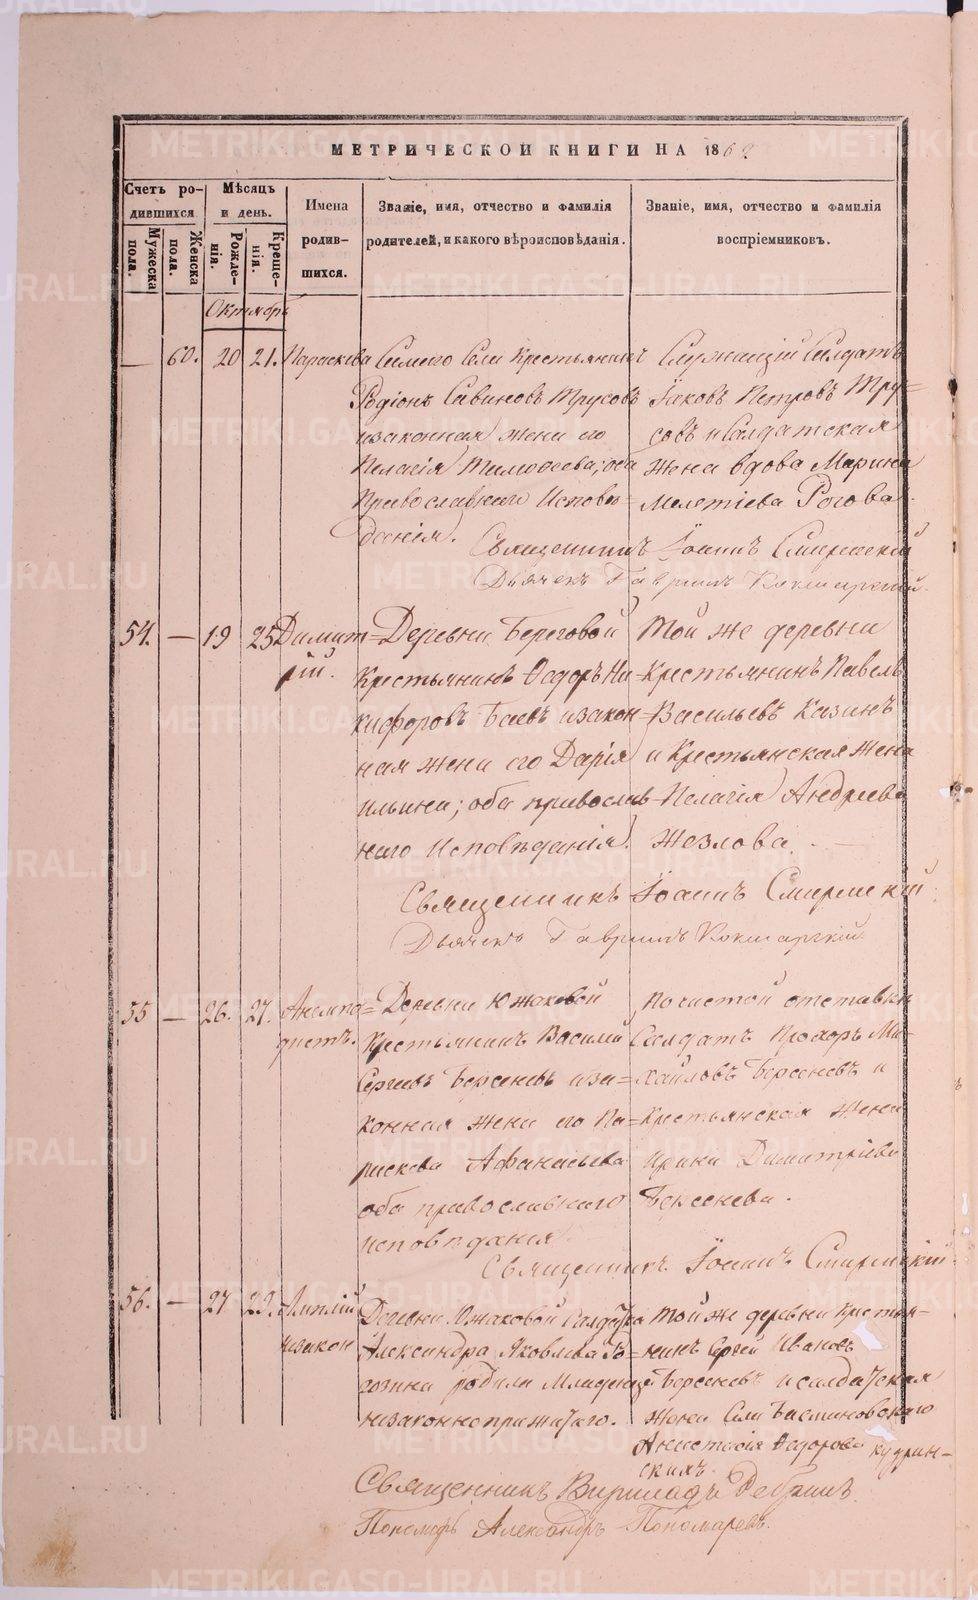 МЕТРИЧЕСКОЙ КНИГИ НА 186
Счетъ родившихся.
Мужеска пола.
Женска пола.
Мѣсяцъ и день.
Рожденія.
Крещенія.
Имена родившихся.
Званіе, имя, отчество и фамилія родителей, и какого вѣроисповѣданія.
Званіе, имя, отчество и фамилія воспріемниковъ.
Октябрь
— 60. 20 21. Параскева
Сего Села Крестьянинъ
Родіонъ Савиновъ Трусовъ
и законная жена его
Пелагія Тимоѳеева; оба
Православнаго Исповѣ=
данія.
Служащій Солдатъ
Іаковъ Петровъ Тру=
совъ и Солдатская
жена вдова Марина
Мелетіева Рогова.
Священникъ Іоаннъ Смирнскій
Дьячекъ Гавріилъ Кокшарскій.
54. — 19 25 Димит=
рій.
Деревни Береговой
Крестьянинъ Ѳедоръ Ни=
кифоровъ Баевъ и закон=
ная жена его Дарія
Ильина; оба православ=
наго Исповѣданія.
Той же деревни
Крестьянинъ Павелъ
Васильевъ Казинъ
и Крестьянская жена
Пелагія Андреева
Жезлова.
Священникъ Іоаннъ Смирнскій
Дьячекъ Гавріилъ Кокшарскій.
55 — 26. 27. Анемпо=
дистъ.
Деревни Южаковой
Крестьянинъ Василій
Сергіевъ Берсеневъ и за=
конная жена его Па=
раскева Афанасьева
оба православнаго
исповѣданія.
По чистой отставки
Солдатъ Прохоръ Ми=
хайловъ Берсеневъ и
Крестьянская жена
Ирина Димитріева
Берсенева.
Священникъ Іоаннъ Смирнскій
56. — 27 29. Амплій
незакон
Деревни Южаковой Солдатка
Александра Яковлева
родила Младенца
незаконноприжитаго.
Той же деревни Крестья=
нинъ Сергей Ивановъ
Берсеневъ и солдатская
жена Села
Анастасія Ѳедорова Кудрин=
скихъ.
Священникъ
Пономарь Александръ Пономаревъ.
METRIKI.GASO-URAL.RU